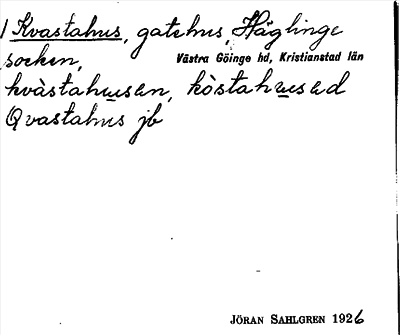 Kvastahus, gatehus, Häglinge
socken, Västra Göinge hd, Kristianstad län
kvàstahusen, kòstahused
Qvastahus jb
JÖRAN SAHLGREN 1926